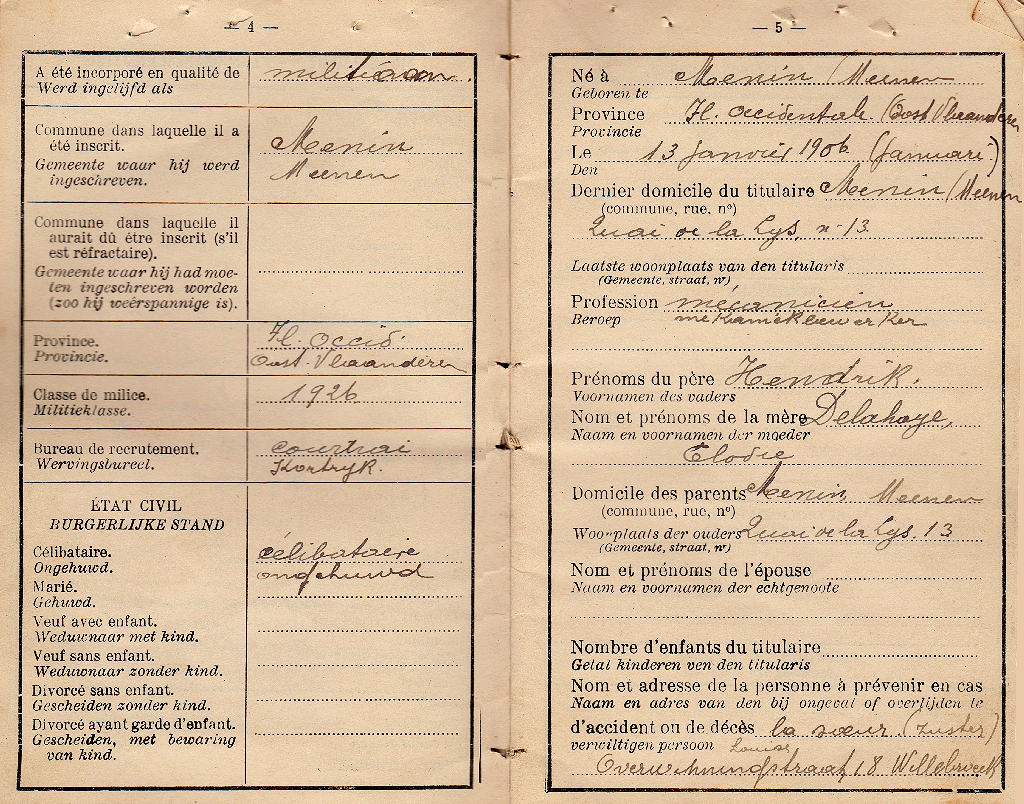 — 4 —
A été incorporé en qualité de
Werd ingelijfd als
Commune dans laquelle il a
été inscrit.
Menin
Gemeente waar hij werd
ingeschreven.
Meenen
Commune dans laquelle il
aurait dû être inscrit (s'il
est réfractaire).
Gemeente waar hij had moe-
ten ingeschreven worden
(zoo hij weêrspannige is).
Province. Fl. Occid.
Provincie. Oost Vlaanderen
Classe de milice. 1926
Militieklasse.
Bureau de recrutement. Courtrai
Wervingsbureel. Kortryk.
ÉTAT CIVIL
BURGERLIJKE STAND
Célibataire. célibataire
Ongehuwd. ongehuwd
Marié.
Gehuwd.
Veuf avec enfant.
Weduwnaar met kind.
Veuf sans enfant.
Weduwnaar zonder kind.
Divorcé sans enfant.
Gescheiden zonder kind.
Divorcé ayant garde d'enfant.
Gescheiden, met bewaring
van kind.
— 5 —
Né à Menin / Meenen
Geboren te
Province Fl. occidentale (Oost Vlaanderen
Provincie
Le 13 Janvier 1906 (Januari)
Den
Dernier domicile du titulaire Menin / Meenen
(commune, rue, nº)
Quai de la Lys, n- 13
Laatste woonplaats van den titularis
(Gemeente, straat, nr)
Profession mécanicien
Beroep
Prénoms du père Hendrik.
Voornamen des vaders
Nom et prénoms de la mère Delahaye,
Naam en voornamen der moeder
Elodie
Domicile des parents Menin, Meenen
(commune, rue, nº)
Woonplaats der ouders Quai de la Lys, 13
(Gemeente, straat, nr)
Nom et prénoms de l'épouse
Naam en voornamen der echtgenoote
Nombre d'enfants du titulaire
Getal kinderen ven den titularis
Nom et adresse de la personne à prévenir en cas
Naam en adres van den bij ongeval of overlijden te
d'accident ou de décès la sœur (zuster)
verwiltigen persoon Louise
18 Willebroeck